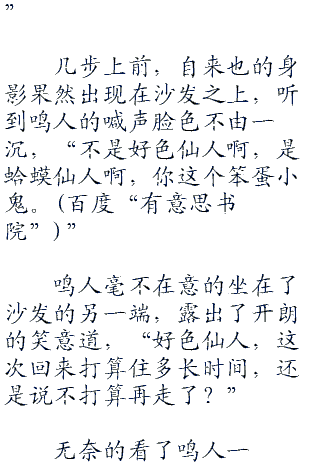 ”
几步上前，自来也的身
影果然出现在沙发之上，听
到鸣人的喊声脸色不由一
沉，“不是好色仙人啊，是
蛤蟆仙人啊，你这个笨蛋小
鬼。(百度“有意思书
院”)”
鸣人毫不在意的坐在了
沙发的另一端，露出了开朗
的笑意道，“好色仙人，这
次回来打算住多长时间，还
是说不打算再走了？”
无奈的看了鸣人一